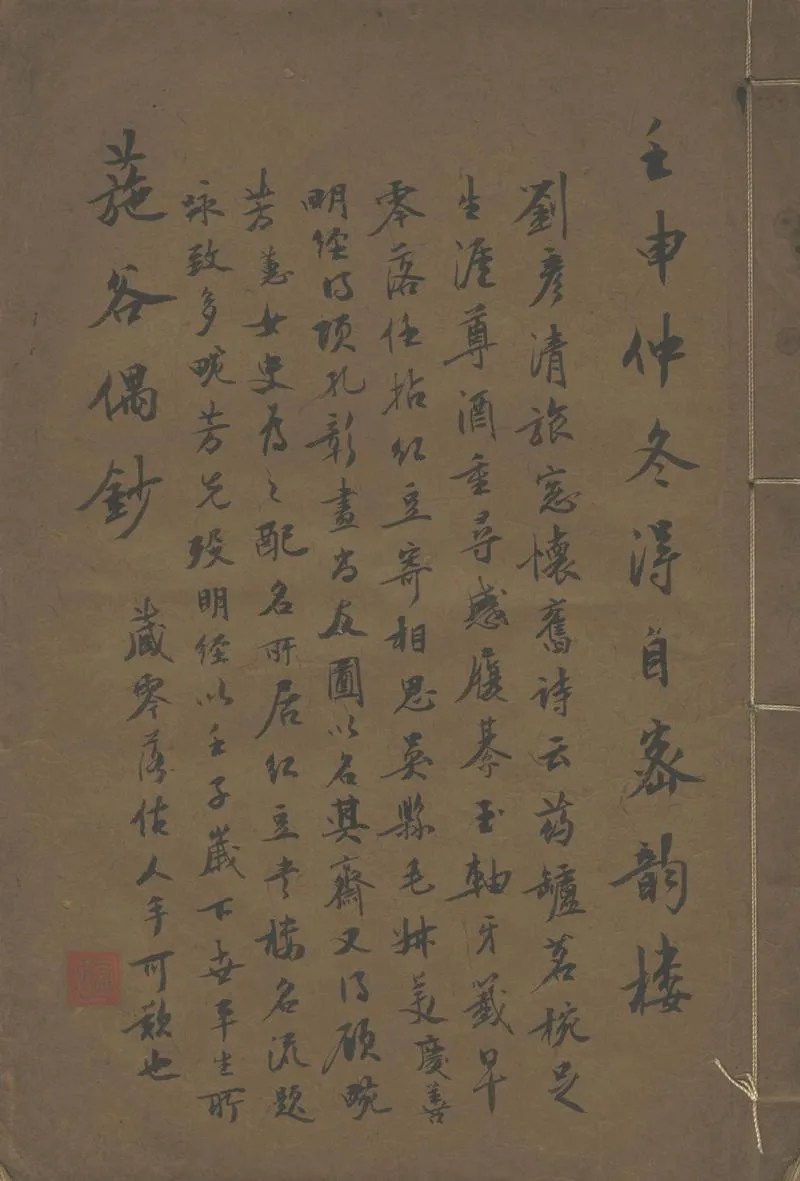 壬申仲冬得自密韵楼
劉彦清旅窓懷舊诗云药罏茗椀足
生涯尊酒重尋感履綦玉軸牙籤早
零落任拈红豆寄相思吴縣毛叔美慶善
明经得项孔彰畫尚友圖以名其齋又得顾畹
芳蕙女史为之配名所居红豆书楼名流题
咏致多畹芳先殁明经以壬子嵗下世平生所
藏零落估人手可歎也
葹谷偶鈔